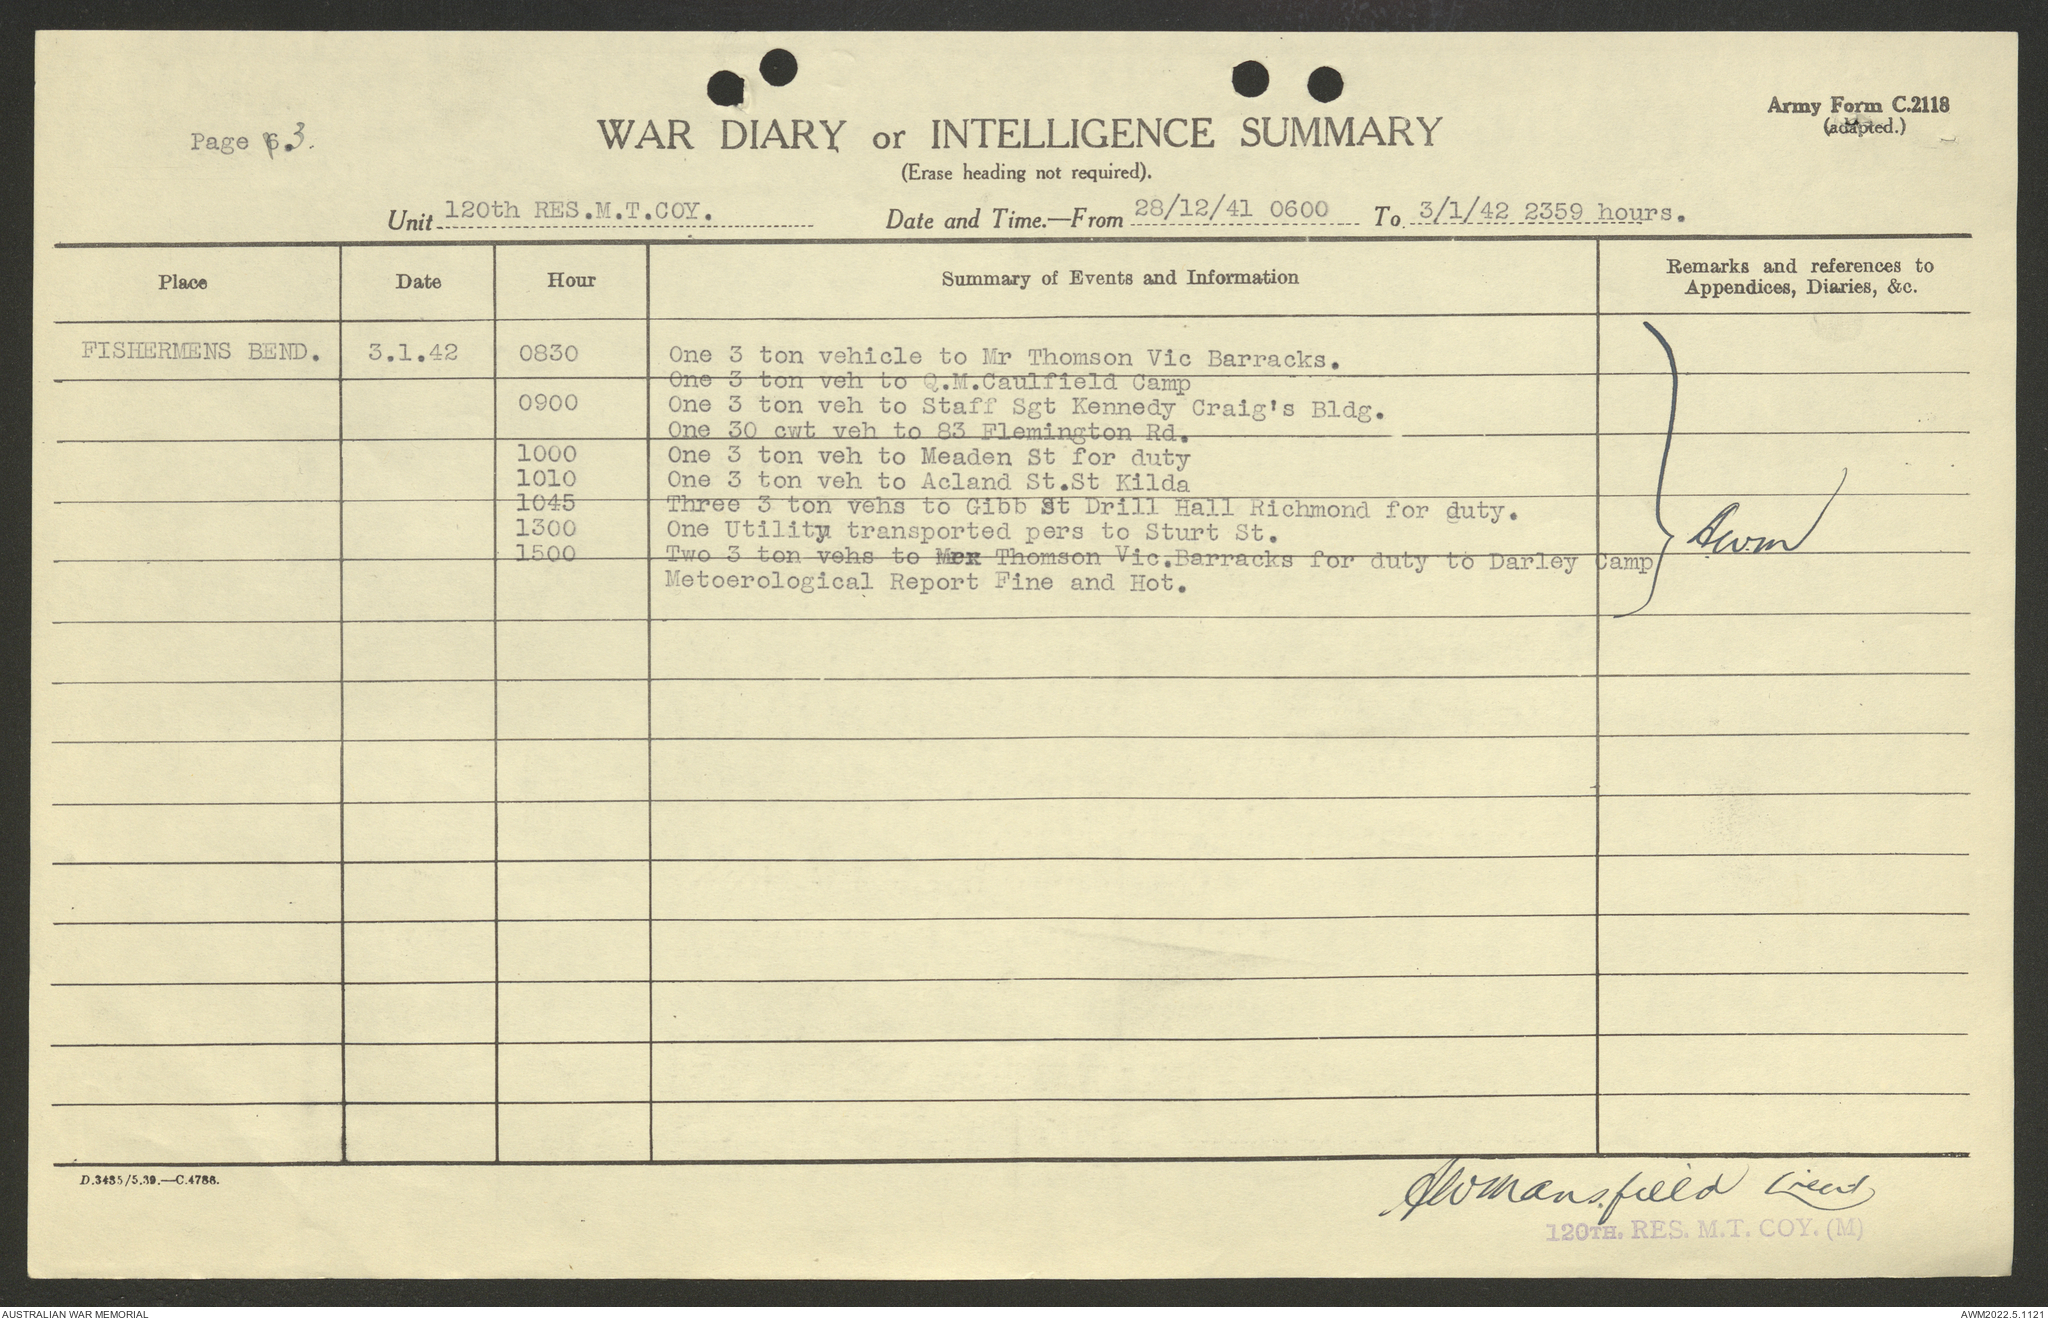 Page 6 3.
WAR DIARY or INTELLIGENCE SUMMARY
(Erase heading not required).
Army Form C.2118
(adapted.)
Unit 120th RES.M.T.COY. Date and Time.—From 28/12/41 0600 To 3/1/42 2359 hours.
Place Date Hour Summary of Events and Information Remarks and references to
Appendices, Diaries, &c.
FISHERMENS BEND. 3.1.42 0830 One 3 ton vehicle to Mr Thomson Vic Barracks.
One 3 ton veh to Q.M.Caulfield Camp
0900 One 3 ton veh to Staff Sgt Kennedy Craig's Bldg.
One 30 cwt veh to 83 Flemington Rd.
1000 One 3 ton veh to Meaden St for duty
1010 One 3 ton veh to Acland St.St Kilda
1045 Three 3 ton vehs to Gibb St Drill Hall Richmond for duty.
1300 One Utility transported pers to Sturt St.
1500 Two 3 ton vehs to Mr Thomson Vic.Barracks for duty to Darley Camp
Metoerological Report Fine and Hot.
D.3485/5.39.—C.4786.
Mansfield Lieut
120TH. RES. M.T. COY. (M)
AUSTRALIAN WAR MEMORIAL AWM2022.5.1121